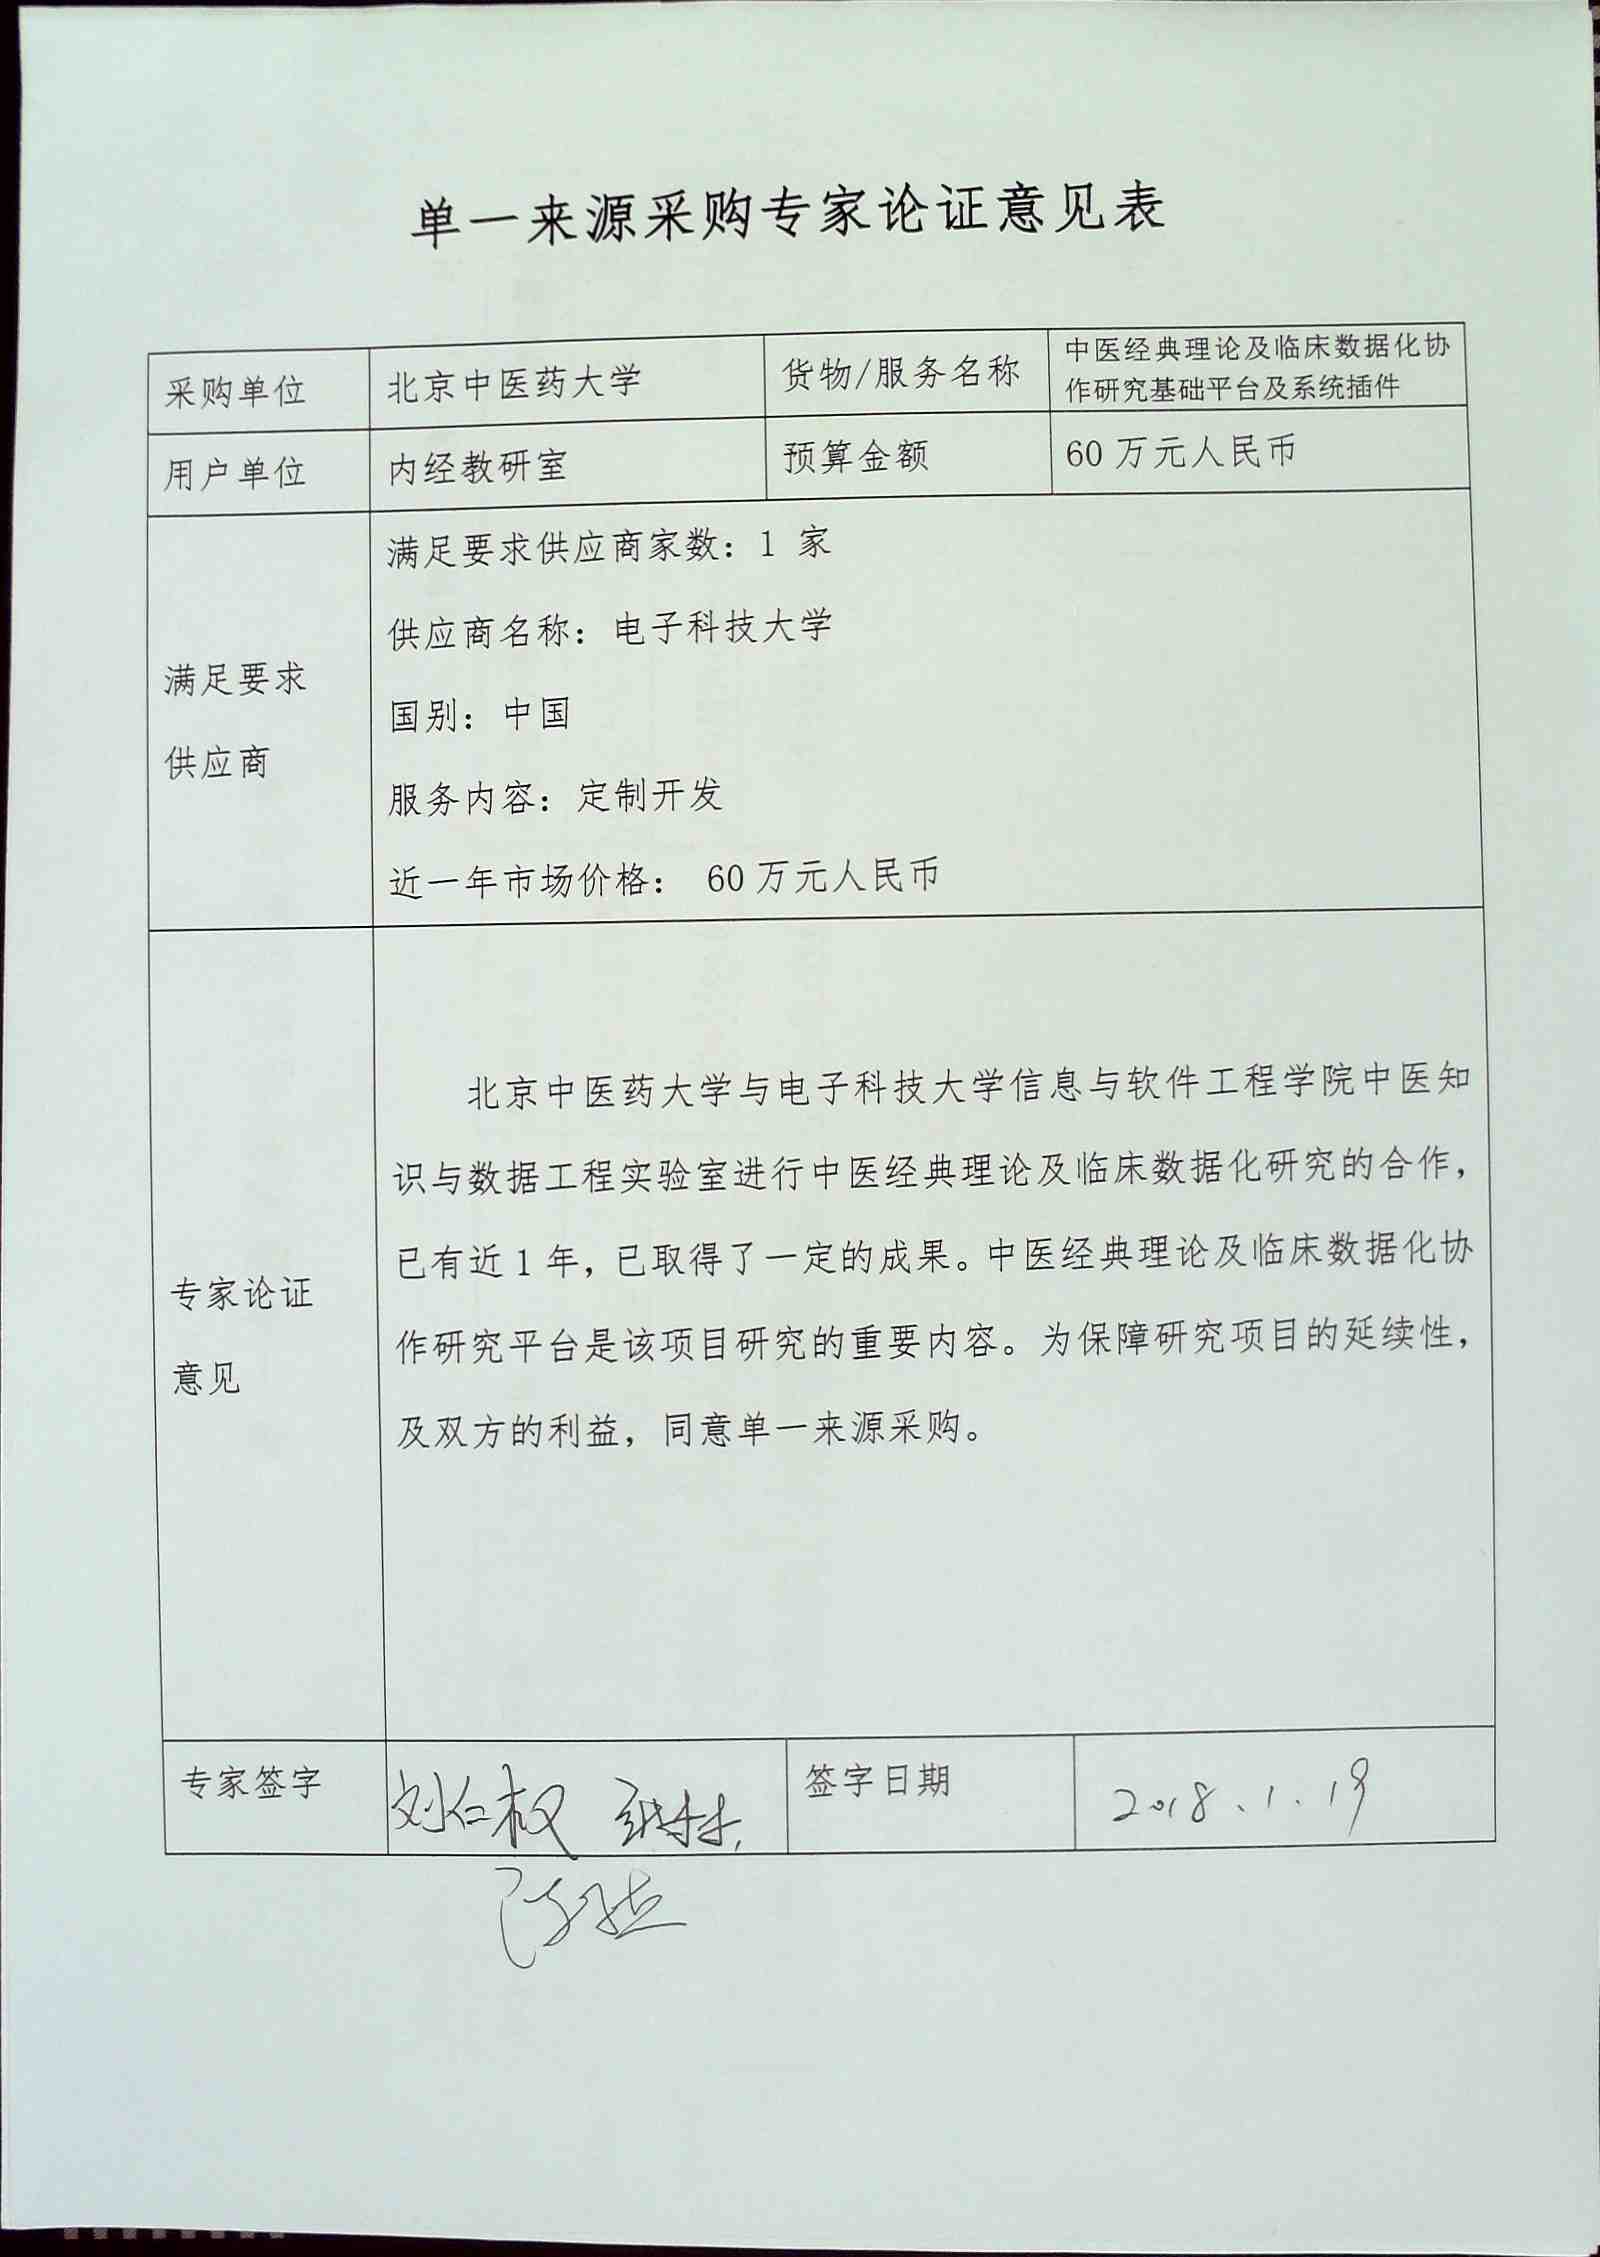 单一来源采购专家论证意见表
采购单位 北京中医药大学 货物/服务名称 中医经典理论及临床数据化协
作研究基础平台及系统插件
用户单位 内经教研室 预算金额 60万元人民币
满足要求
供应商
满足要求供应商家数：1 家
供应商名称：电子科技大学
国别：中国
服务内容：定制开发
近一年市场价格： 60万元人民币
专家论证
意见
北京中医药大学与电子科技大学信息与软件工程学院中医知
识与数据工程实验室进行中医经典理论及临床数据化研究的合作，
已有近1年，已取得了一定的成果。中医经典理论及临床数据化协
作研究平台是该项目研究的重要内容。为保障研究项目的延续性，
及双方的利益，同意单一来源采购。
专家签字 刘仁权 签字日期 2018.1.19